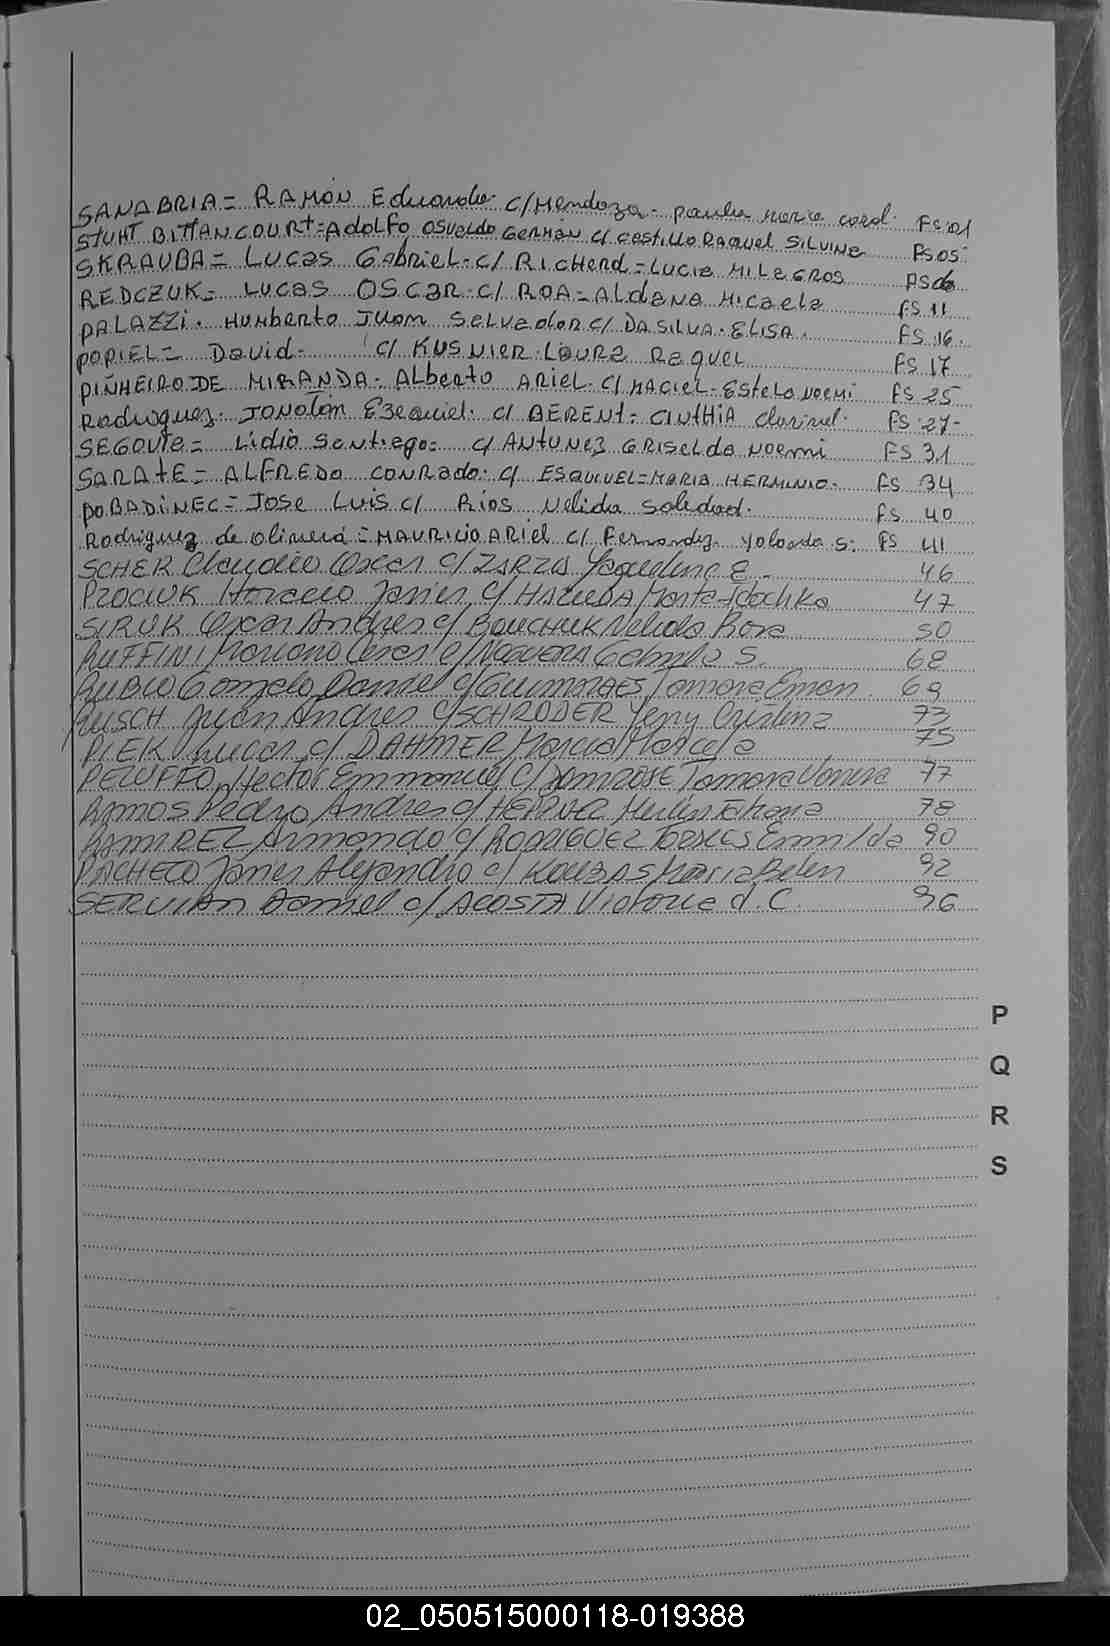 SANABRIA= RAMÓN Eduardo c/Mendoza- Paula Maria Carol. FS 01
STUHT BITTANCOURT=AdOLFO OSVALDO GERMÁN c/ CASTILLO RAQUEL SILVINA FS 05
SKRAUBA= LUCAS GABRIEL- c/ RICHERD=LUCIA MILAGROS FS 06
REDCZUK= LUCAS OSCAR- c/ ROA=ALdANA Micaela FS 11
PALAZZI. HUMBERTO JUAN SALVADOR c/ DA SILVA. ELISA. FS 16.
POPIEL= David. c/ KUSNIER. LAURA RAQUEL FS 17
PIÑHEIRO DE MIRANDA- ALBERTO ARIEL- c/ MACIEL- ESTELA NOEMI FS 25
Rodriguez. JONATAN Ezequiel. c/ BERENT= CINTHIA FS 27-
SEGOVIA= Lidio Santiago= c/ ANTUNEZ GRISELDA NOEMI FS 31
SARATE= ALFREDO CONRADO. c/ ESQUIVEL=MARIA HERMINIA. FS 34
POBADINEC= JOSE LUIS c/ RIOS Nelida Soledad. FS 40
Rodriguez de oliveira = MAURICIO ARIEL c/ Fernandez Yolanda S. FS 41
SCHER Claudio Oscar c/ ZARZA Jaqueline E. 46
PROCIUK Horacio Javier c/ Marta 47
SIRUK Oscar Andres c/ BOUCHUK Nelida Rosa 50
RUFFINI Mariano Cesar c/ NOGUERA Gabriela S. 68
RUBIO Gonzalo Daniel c/ GUIMARAES Tamara 69
RUSCH Juan Andres c/ SCHRODER Yenny Cristina 73
PLEK Lucas c/ DAHMER Marcia Marcela 75
PELUFFO Hector Emmanuel c/ Tamara Vanina 77
RAMOS Pedro Andres c/ Tatiana 78
RAMIREZ Armando c/ RODRIGUEZ TORRES Ermilda 90
PACHECO Javier Alejandro c/ Maria Belen 92
SERVIAN Daniel c/ ACOSTA Victoria d. C. 96
P
Q
R
S
02_050515000118-019388